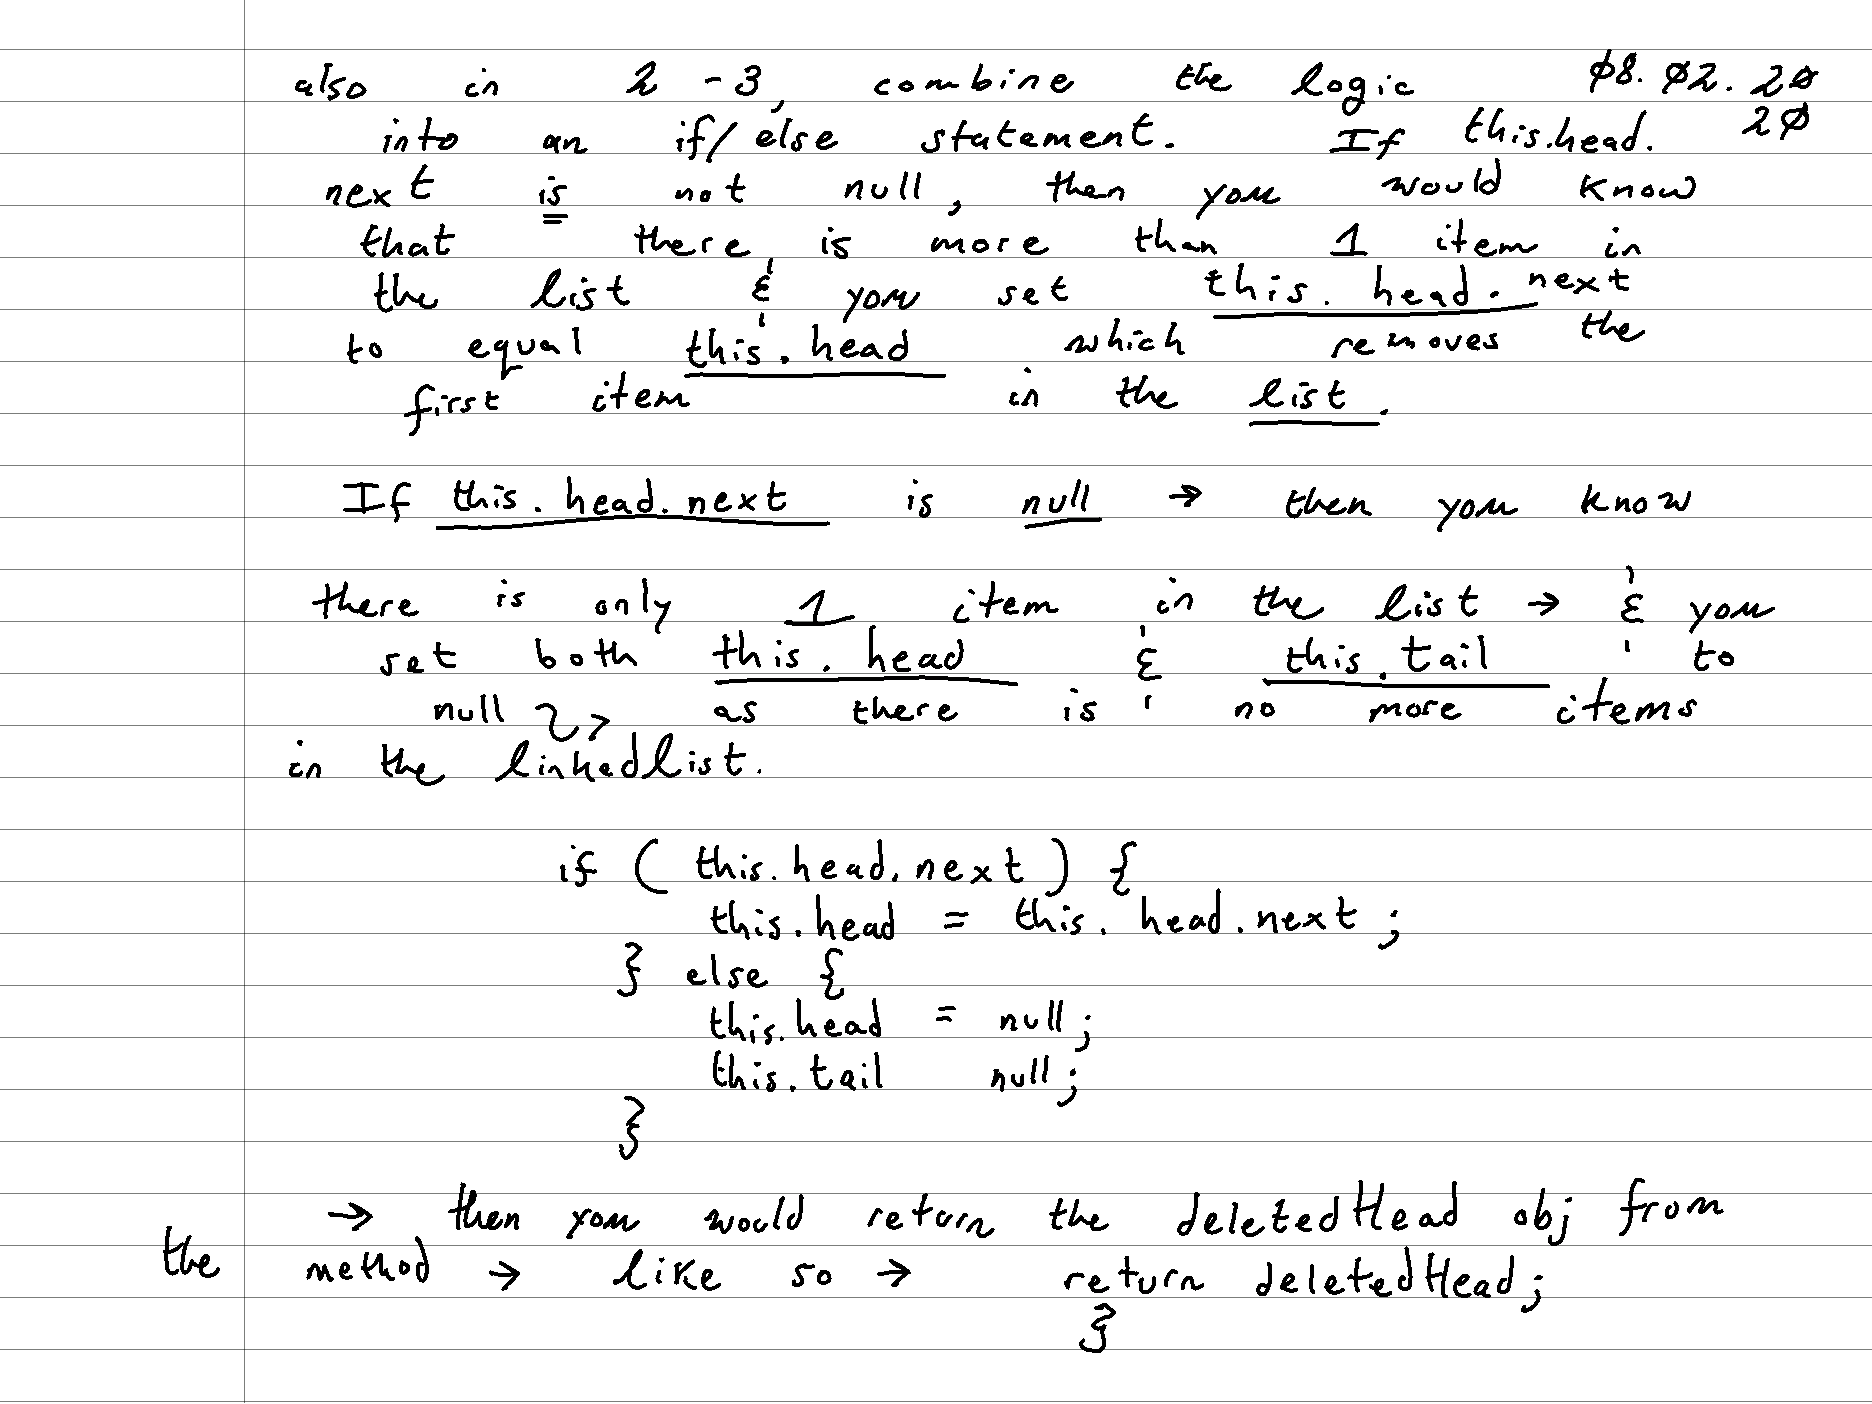 also in 2 - 3, combine the logic 08. 02. 20
into an if/else statement. If this.head. 20
next is not null, then you would know
that there is more than 1 item in
the list & you set this. head. next
to equal this. head which removes the
first item in the list.
If this. head. next is null → then you know
there is only 1 item in the list → & you
set both this. head & this. tail to
null as there is no more items
in the linkedlist.
if ( this. head. next ) {
this. head = this. head. next ;
} else {
this. head = null;
this. tail null;
}
→ then you would return the deletedHead obj from
the method → like so → return deletedHead;
}